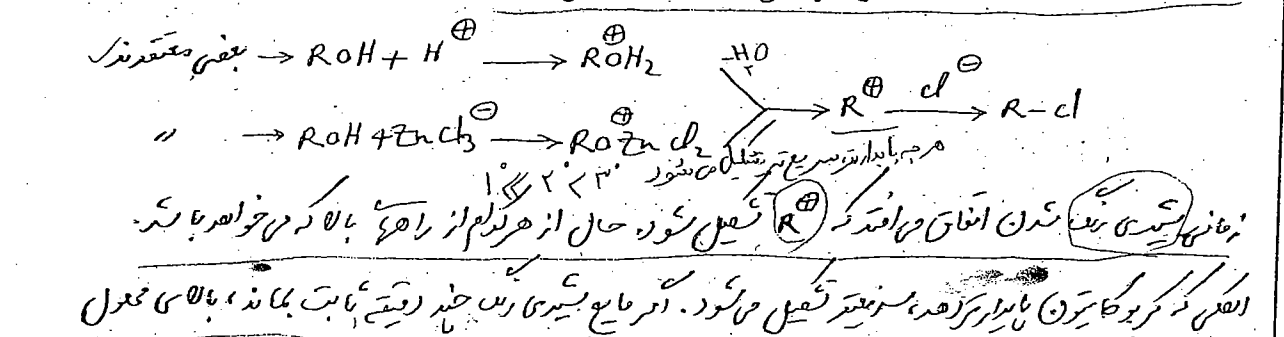 بعضی معتقدند → ROH + H⊕ → RO⊕H2 -H2O
R⊕ Cl⊖ → R-Cl
〃 → ROH + ZnCl3⊖ → RO⊕ZnCl2
هرچه پایدارتر، سریع‌تر تشکیل می‌شود
۱° ≪ ۲° < ۳°
زمانی شیری رنگ شدن اتفاق می‌افتد که R⊕ تشکیل شود. حال از هر کدام از راههای بالا که می‌خواهد باشد.
الکلی که کربوکاتیون پایدارتر دهد، سریعتر تشکیل می‌شود. اگر مایع شیری رنگ چند دقیقه ثابت بماند، بالای محلول